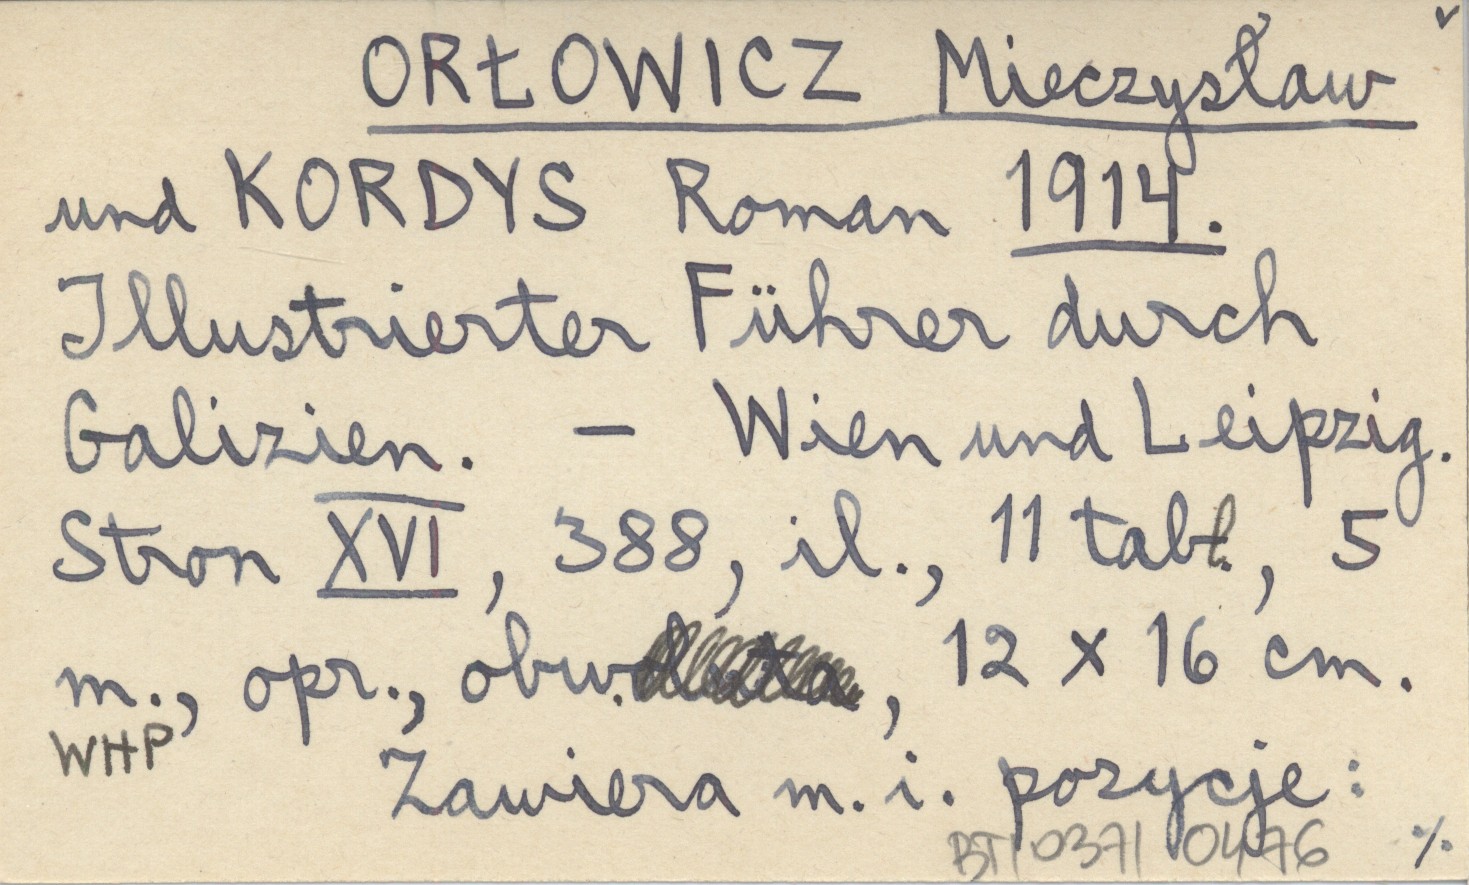 ORŁOWICZ Mieczysław
und KORDYS Roman 1914.
Illustrierter Führer durch
Galizien. – Wien und Leipzig.
Stron XVI, 388, il., 11 tabl., 5
m., opr., obw., 12 x 16 cm.
WHP
Zawiera m. i. pozycje:
BT/0371/0476 ./.